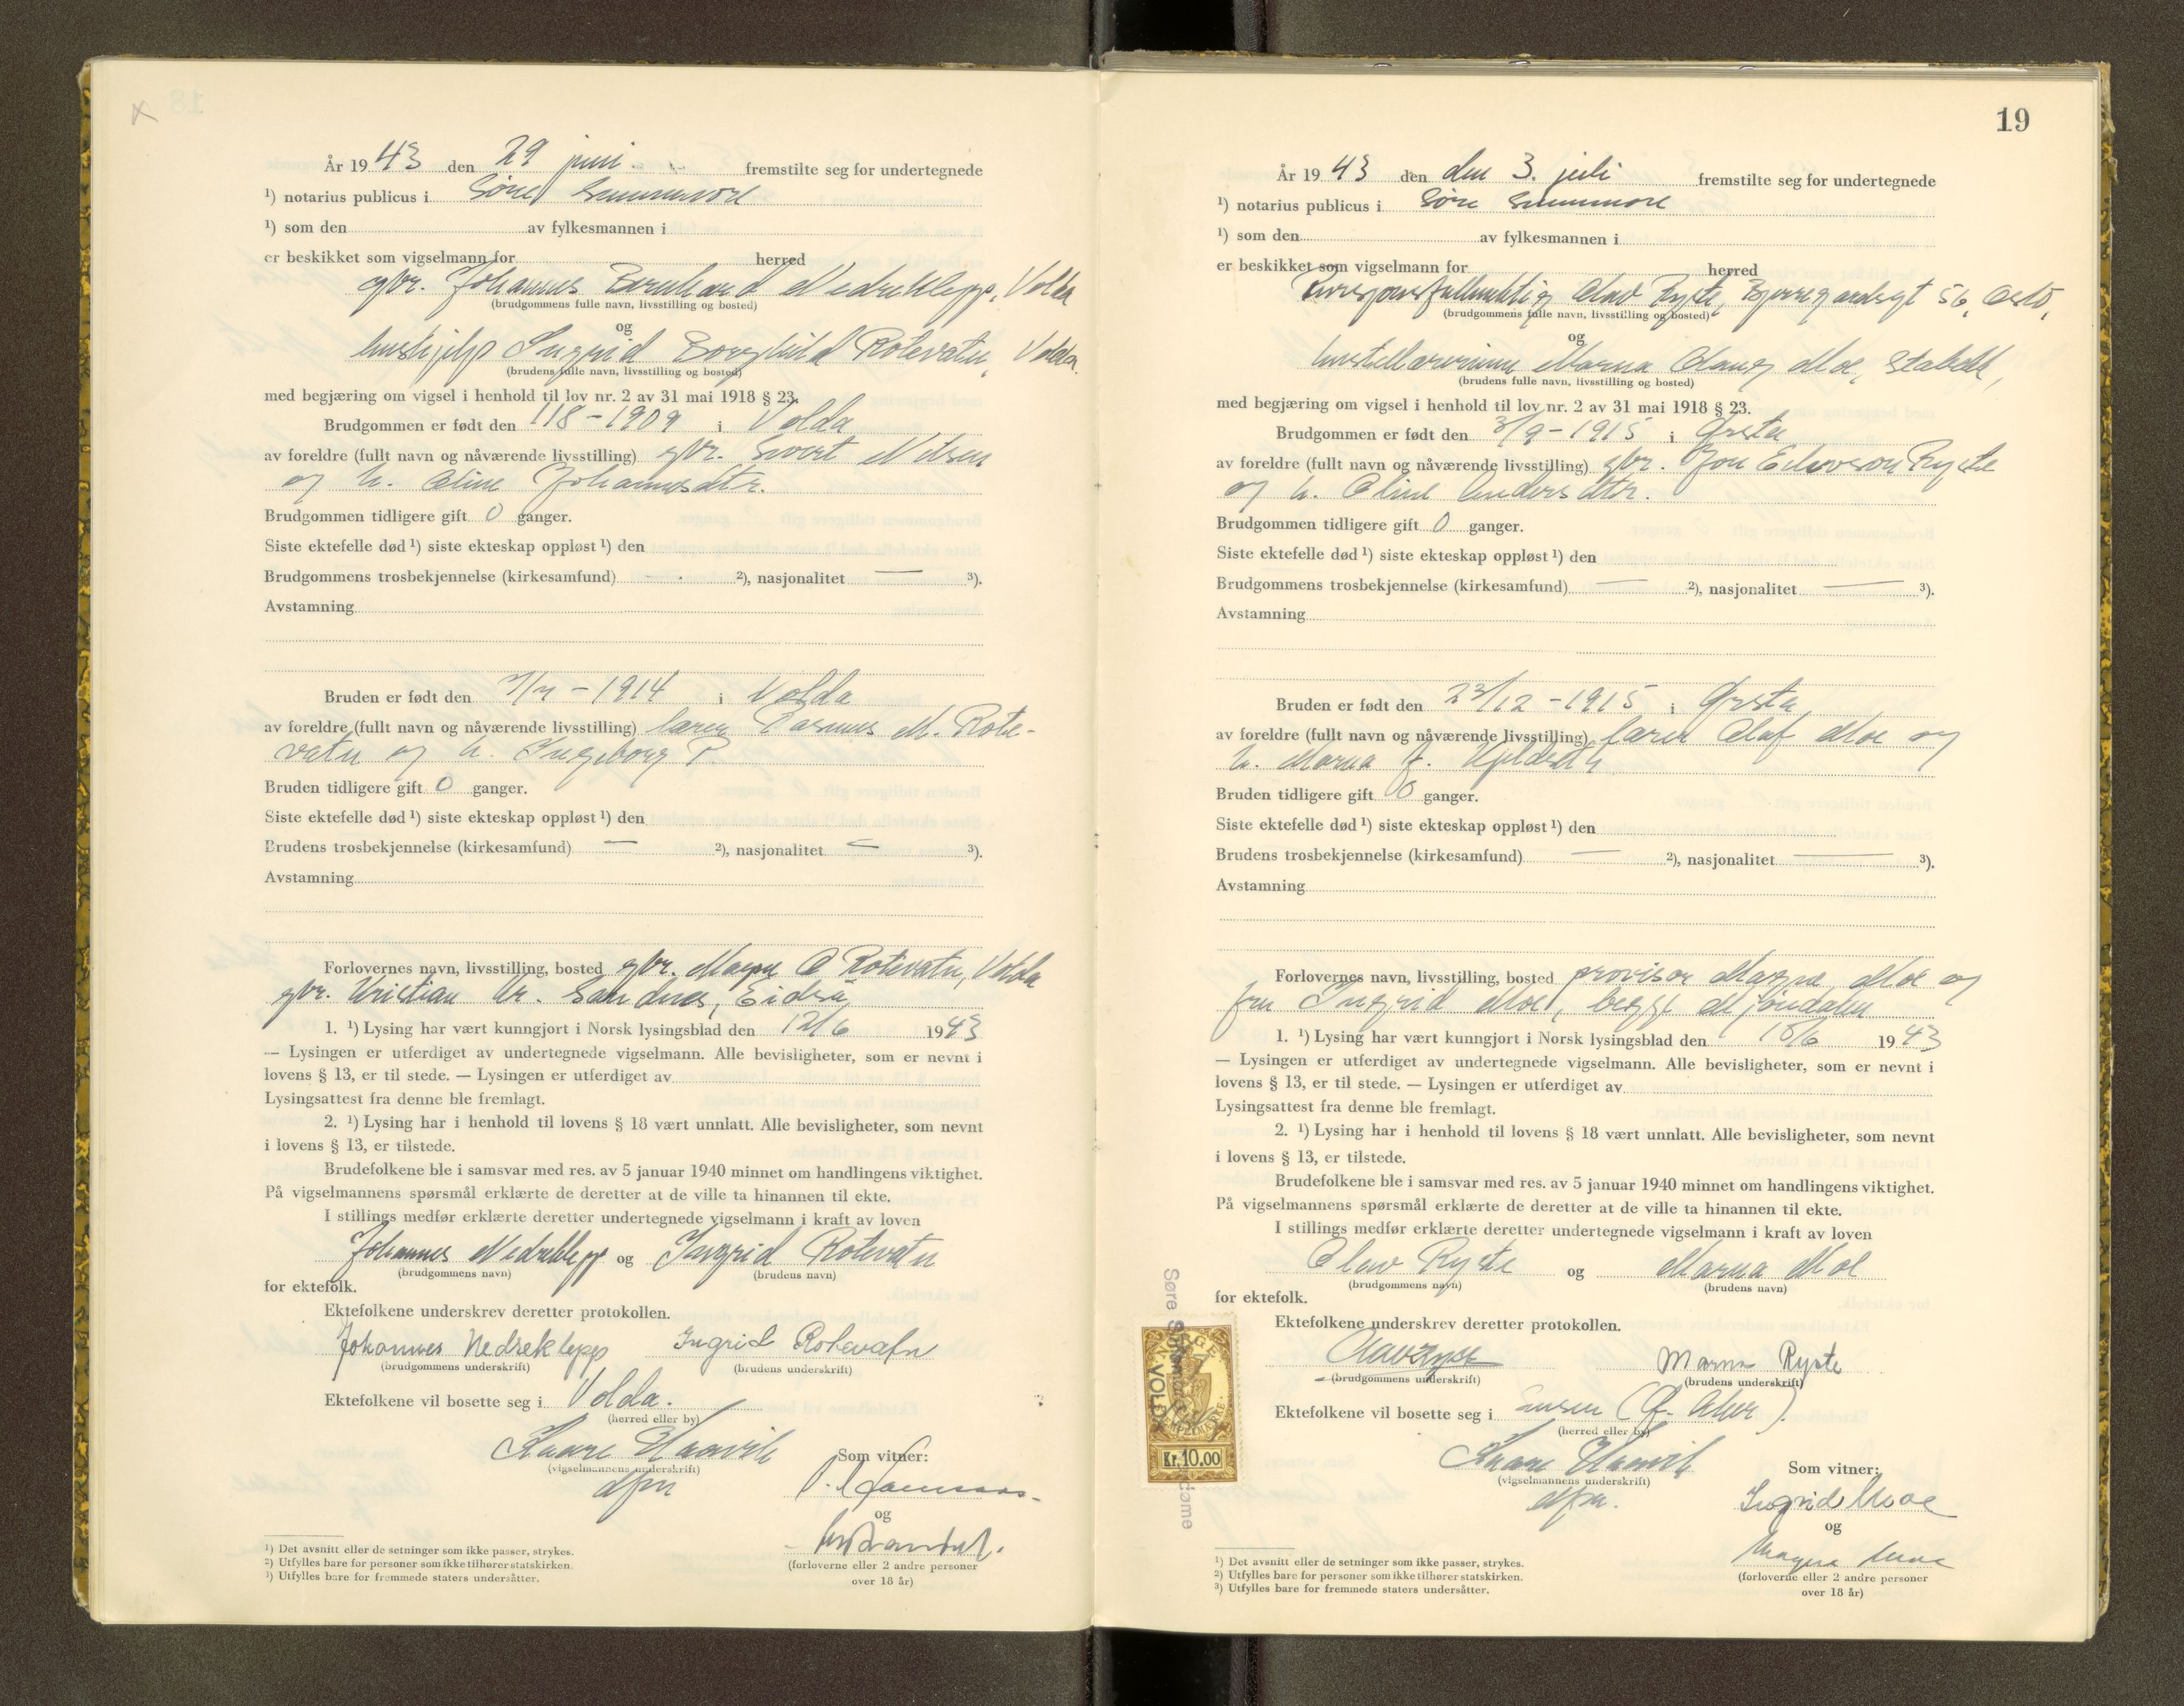 År 1943 den 29 juni fremstilte seg for undertegnede
¹) notarius publicus i Søre Sunnmøre
¹) som den av fylkesmannen i
er beskikket som vigselmann for herred
gbr. Johannes Bernhard Nedreklepp, Volda
(brudgommens fulle navn, livsstilling og bosted)
og
hushjelp Ingrid Borghild Rotevatn, Volda
(brudens fulle navn, livsstilling og bosted)
med begjæring om vigsel i henhold til lov nr. 2 av 31 mai 1918 § 23.
Brudgommen er født den 1/8-1909 i Volda
av foreldre (fullt navn og nåværende livsstilling) gbr. Sivert Nilsen
og h. Oline Johannesdtr.
Brudgommen tidligere gift 0 ganger.
Siste ektefelle død ¹) siste ekteskap oppløst ¹) den
Brudgommens trosbekjennelse (kirkesamfund) — ²), nasjonalitet — ³).
Avstamning
Bruden er født den - 1914 i Volda
av foreldre (fullt navn og nåværende livsstilling) lærer Rasmus M. Rote-
vatn og h. Ingeborg P.
Bruden tidligere gift 0 ganger.
Siste ektefelle død ¹) siste ekteskap oppløst ¹) den
Brudens trosbekjennelse (kirkesamfund) — ²), nasjonalitet — ³).
Avstamning
Forlovernes navn, livsstilling, bosted gbr. Magne O Rotevatn, Volda
gbr. Kristian Kr. Sandnes, Eidså
1. ¹) Lysing har vært kunngjort i Norsk lysingsblad den 12/6 1943
— Lysingen er utferdiget av undertegnede vigselmann. Alle bevisligheter, som er nevnt i
lovens § 13, er til stede. — Lysingen er utferdiget av
Lysingsattest fra denne ble fremlagt.
2. ¹) Lysing har i henhold til lovens § 18 vært unnlatt. Alle bevisligheter, som nevnt
i lovens § 13, er tilstede.
Brudefolkene ble i samsvar med res. av 5 januar 1940 minnet om handlingens viktighet.
På vigselmannens spørsmål erklærte de deretter at de ville ta hinannen til ekte.
I stillings medfør erklærte deretter undertegnede vigselmann i kraft av loven
Johannes Nedreklepp og Ingrid Rotevatn
(brudgommens navn) (brudens navn)
for ektefolk.
Ektefolkene underskrev deretter protokollen.
Johannes Nedreklepp Ingrid Rotevatn
(brudgommens underskrift) (brudens underskrift)
Ektefolkene vil bosette seg i Volda.
(herred eller by)
Kaare Haavik
(vigselmannens underskrift)
dfm
Som vitner:
og
(forloverne eller 2 andre personer
over 18 år)
¹) Det avsnitt eller de setninger som ikke passer, strykes.
²) Utfylles bare for personer som ikke tilhører statskirken.
³) Utfylles bare for fremmede staters undersåtter.
19
År 1943 den den 3. juli fremstilte seg for undertegnede
¹) notarius publicus i Søre Sunnmøre
¹) som den av fylkesmannen i
er beskikket som vigselmann for herred
Olav Ryste, Bjerregaardsgt 56, Oslo,
(brudgommens fulle navn, livsstilling og bosted)
og
Marna Moe, Stabekk,
(brudens fulle navn, livsstilling og bosted)
med begjæring om vigsel i henhold til lov nr. 2 av 31 mai 1918 § 23.
Brudgommen er født den 3/9-1915 i Ørsta
av foreldre (fullt navn og nåværende livsstilling) gbr. Jon Ryste
og h. Oline Andersdtr.
Brudgommen tidligere gift 0 ganger.
Siste ektefelle død ¹) siste ekteskap oppløst ¹) den
Brudgommens trosbekjennelse (kirkesamfund) — ²), nasjonalitet — ³).
Avstamning
Bruden er født den 23/12-1915 i Ørsta
av foreldre (fullt navn og nåværende livsstilling) lærer Olaf Moe og
h. Marna f.
Bruden tidligere gift 0 ganger.
Siste ektefelle død ¹) siste ekteskap oppløst ¹) den
Brudens trosbekjennelse (kirkesamfund) — ²), nasjonalitet — ³).
Avstamning
Forlovernes navn, livsstilling, bosted provisor Magne Moe og
fru Ingrid Moe, begge Mjøndalen
1. ¹) Lysing har vært kunngjort i Norsk lysingsblad den 18/6 1943
— Lysingen er utferdiget av undertegnede vigselmann. Alle bevisligheter, som er nevnt i
lovens § 13, er til stede. — Lysingen er utferdiget av
Lysingsattest fra denne ble fremlagt.
2. ¹) Lysing har i henhold til lovens § 18 vært unnlatt. Alle bevisligheter, som nevnt
i lovens § 13, er tilstede.
Brudefolkene ble i samsvar med res. av 5 januar 1940 minnet om handlingens viktighet.
På vigselmannens spørsmål erklærte de deretter at de ville ta hinannen til ekte.
I stillings medfør erklærte deretter undertegnede vigselmann i kraft av loven
Olav Ryste og Marna Moe
(brudgommens navn) (brudens navn)
for ektefolk.
Ektefolkene underskrev deretter protokollen.
Olav Ryste Marna Ryste
(brudgommens underskrift) (brudens underskrift)
Ektefolkene vil bosette seg i (f. Aker).
(herred eller by)
Kaare Haavik
(vigselmannens underskrift)
dfm.
Som vitner:
Ingrid Moe
og
Magne Moe
(forloverne eller 2 andre personer
over 18 år)
Kr. 10.00
¹) Det avsnitt eller de setninger som ikke passer, strykes.
²) Utfylles bare for personer som ikke tilhører statskirken.
³) Utfylles bare for fremmede staters undersåtter.